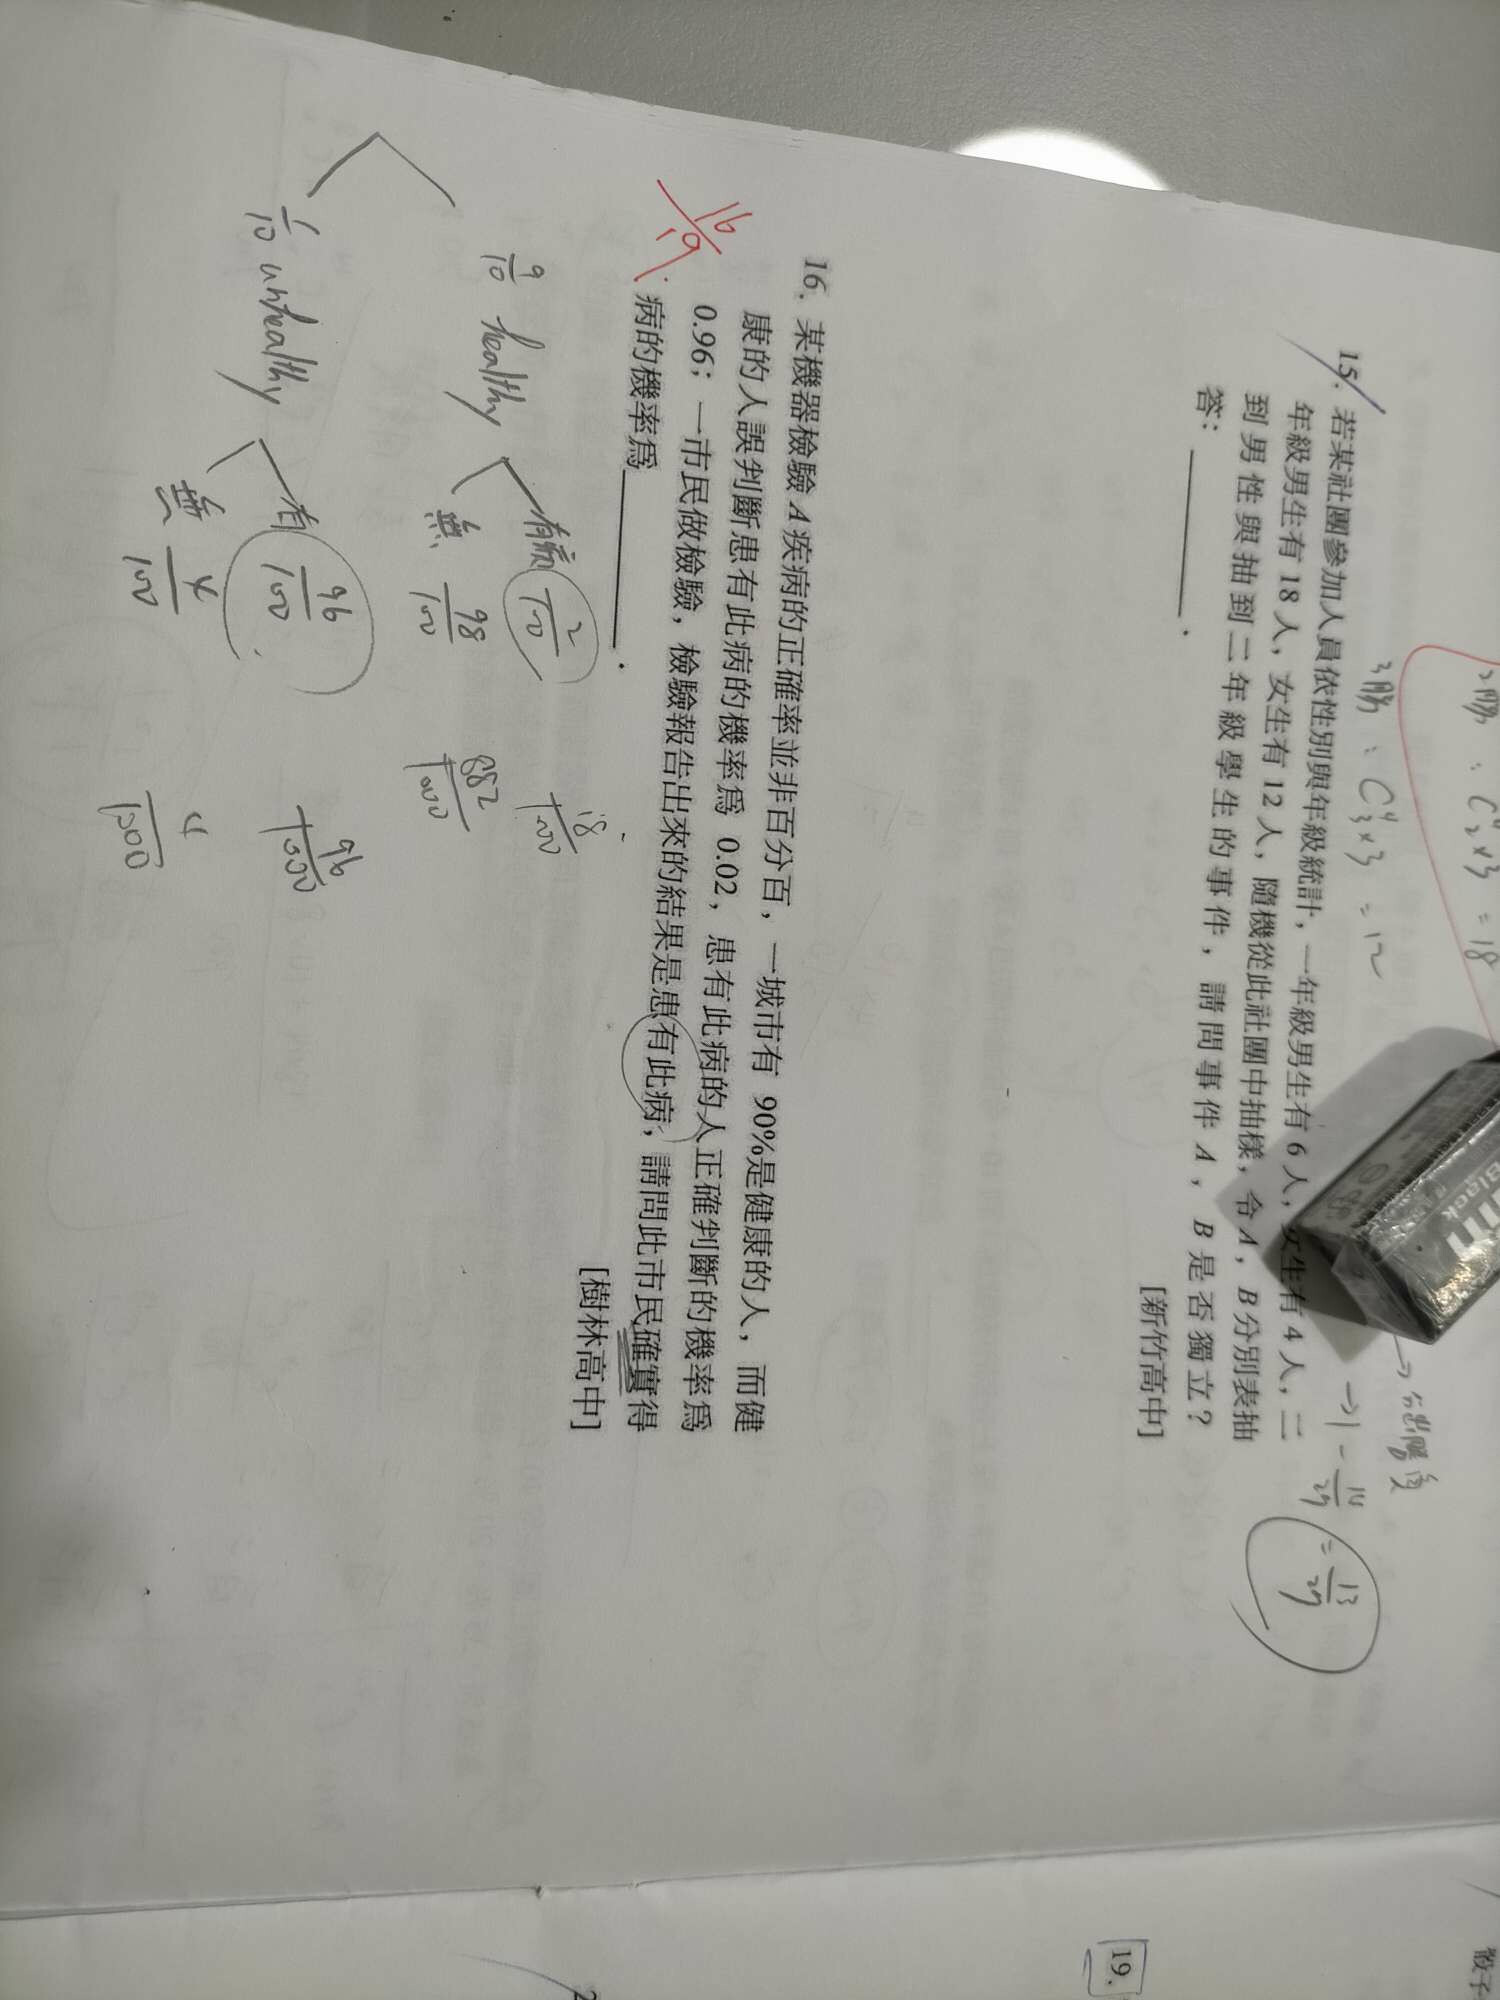 2勝：C⁴₂×3＝18
3勝：C⁴₃×3＝12
→1－14/27＝13/27
15. 若某社團參加人員依性別與年級統計，一年級男生有 6 人，女生有 4 人，二
年級男生有 18 人，女生有 12 人，隨機從此社團中抽樣，令 A，B 分別表抽
到男性與抽到二年級學生的事件，請問事件 A，B 是否獨立？
答：
[新竹高中]
16. 某機器檢驗 A 疾病的正確率並非百分百，一城市有 90%是健康的人，而健
康的人誤判斷患有此病的機率為 0.02，患有此病的人正確判斷的機率為
0.96；一市民做檢驗，檢驗報告出來的結果是患有此病，請問此市民確實得
病的機率為．
[樹林高中]
16/19
9/10 healthy
有病 2/100 18/1000
無 98/100 882/1000
1/10 unhealthy
有 96/100 96/1000
無 4/100 4/1000
19.
骰子